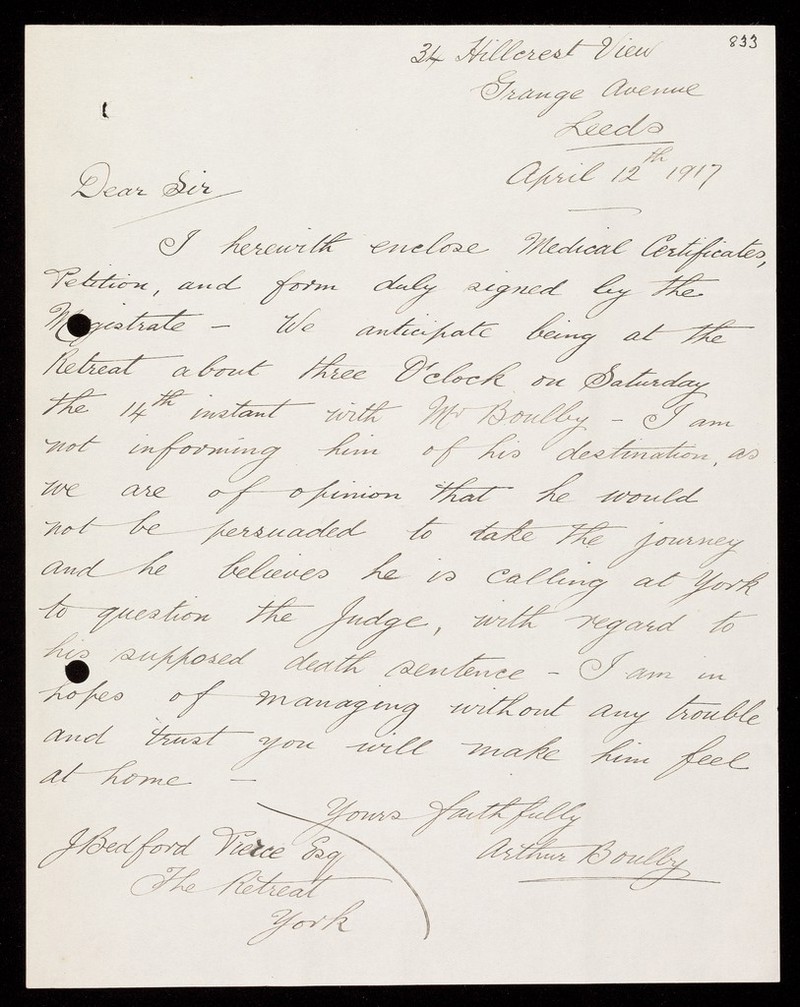 833
34 Hillcrest View
Grange Avenue
Leeds
April 12th 1917
Dear Sir
I herewith enclose Medical Certificates,
Petition, and form duly signed by the
Magistrate - We anticipate being at the
Retreat about three O'clock on Saturday
the 14th instant with Mr Boulby - I am
not informing him of his destination, as
we are of opinion that he would
not be persuaded to take the journey
and he believes he is calling at York
to question the Judge, with regard to
his supposed death sentence - I am in
hopes of managing without any trouble
and trust you will make him feel
at home -
Yours faithfully
Arthur Boulby
J Bedford Pierce Esq
The Retreat
York